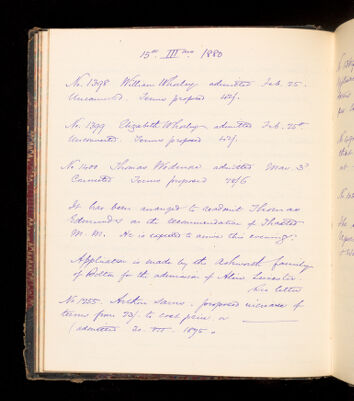 15th IIImo 1880
No. 1398 William Whorley admitted Feb. 25.
Unconnected. Terms proposed 42/.
No. 1399 Elizabeth Whorley admitted Feb. 25th
Unconnected. Terms proposed 42/.
No 1400 Thomas admitted Mar. 3d
Connected Terms proposed
It has been arranged to readmit Thomas
Edmunds on the recommendation of Thaxted
M. M. He is expected to arrive this evening.
Application is made by the Ashworth family
of Bolton for the admission of Alice Lancaster
See letter
No 1255. Arthur proposed increase of
terms from 73/- to cost price or
(admitted 20. III. 1875.